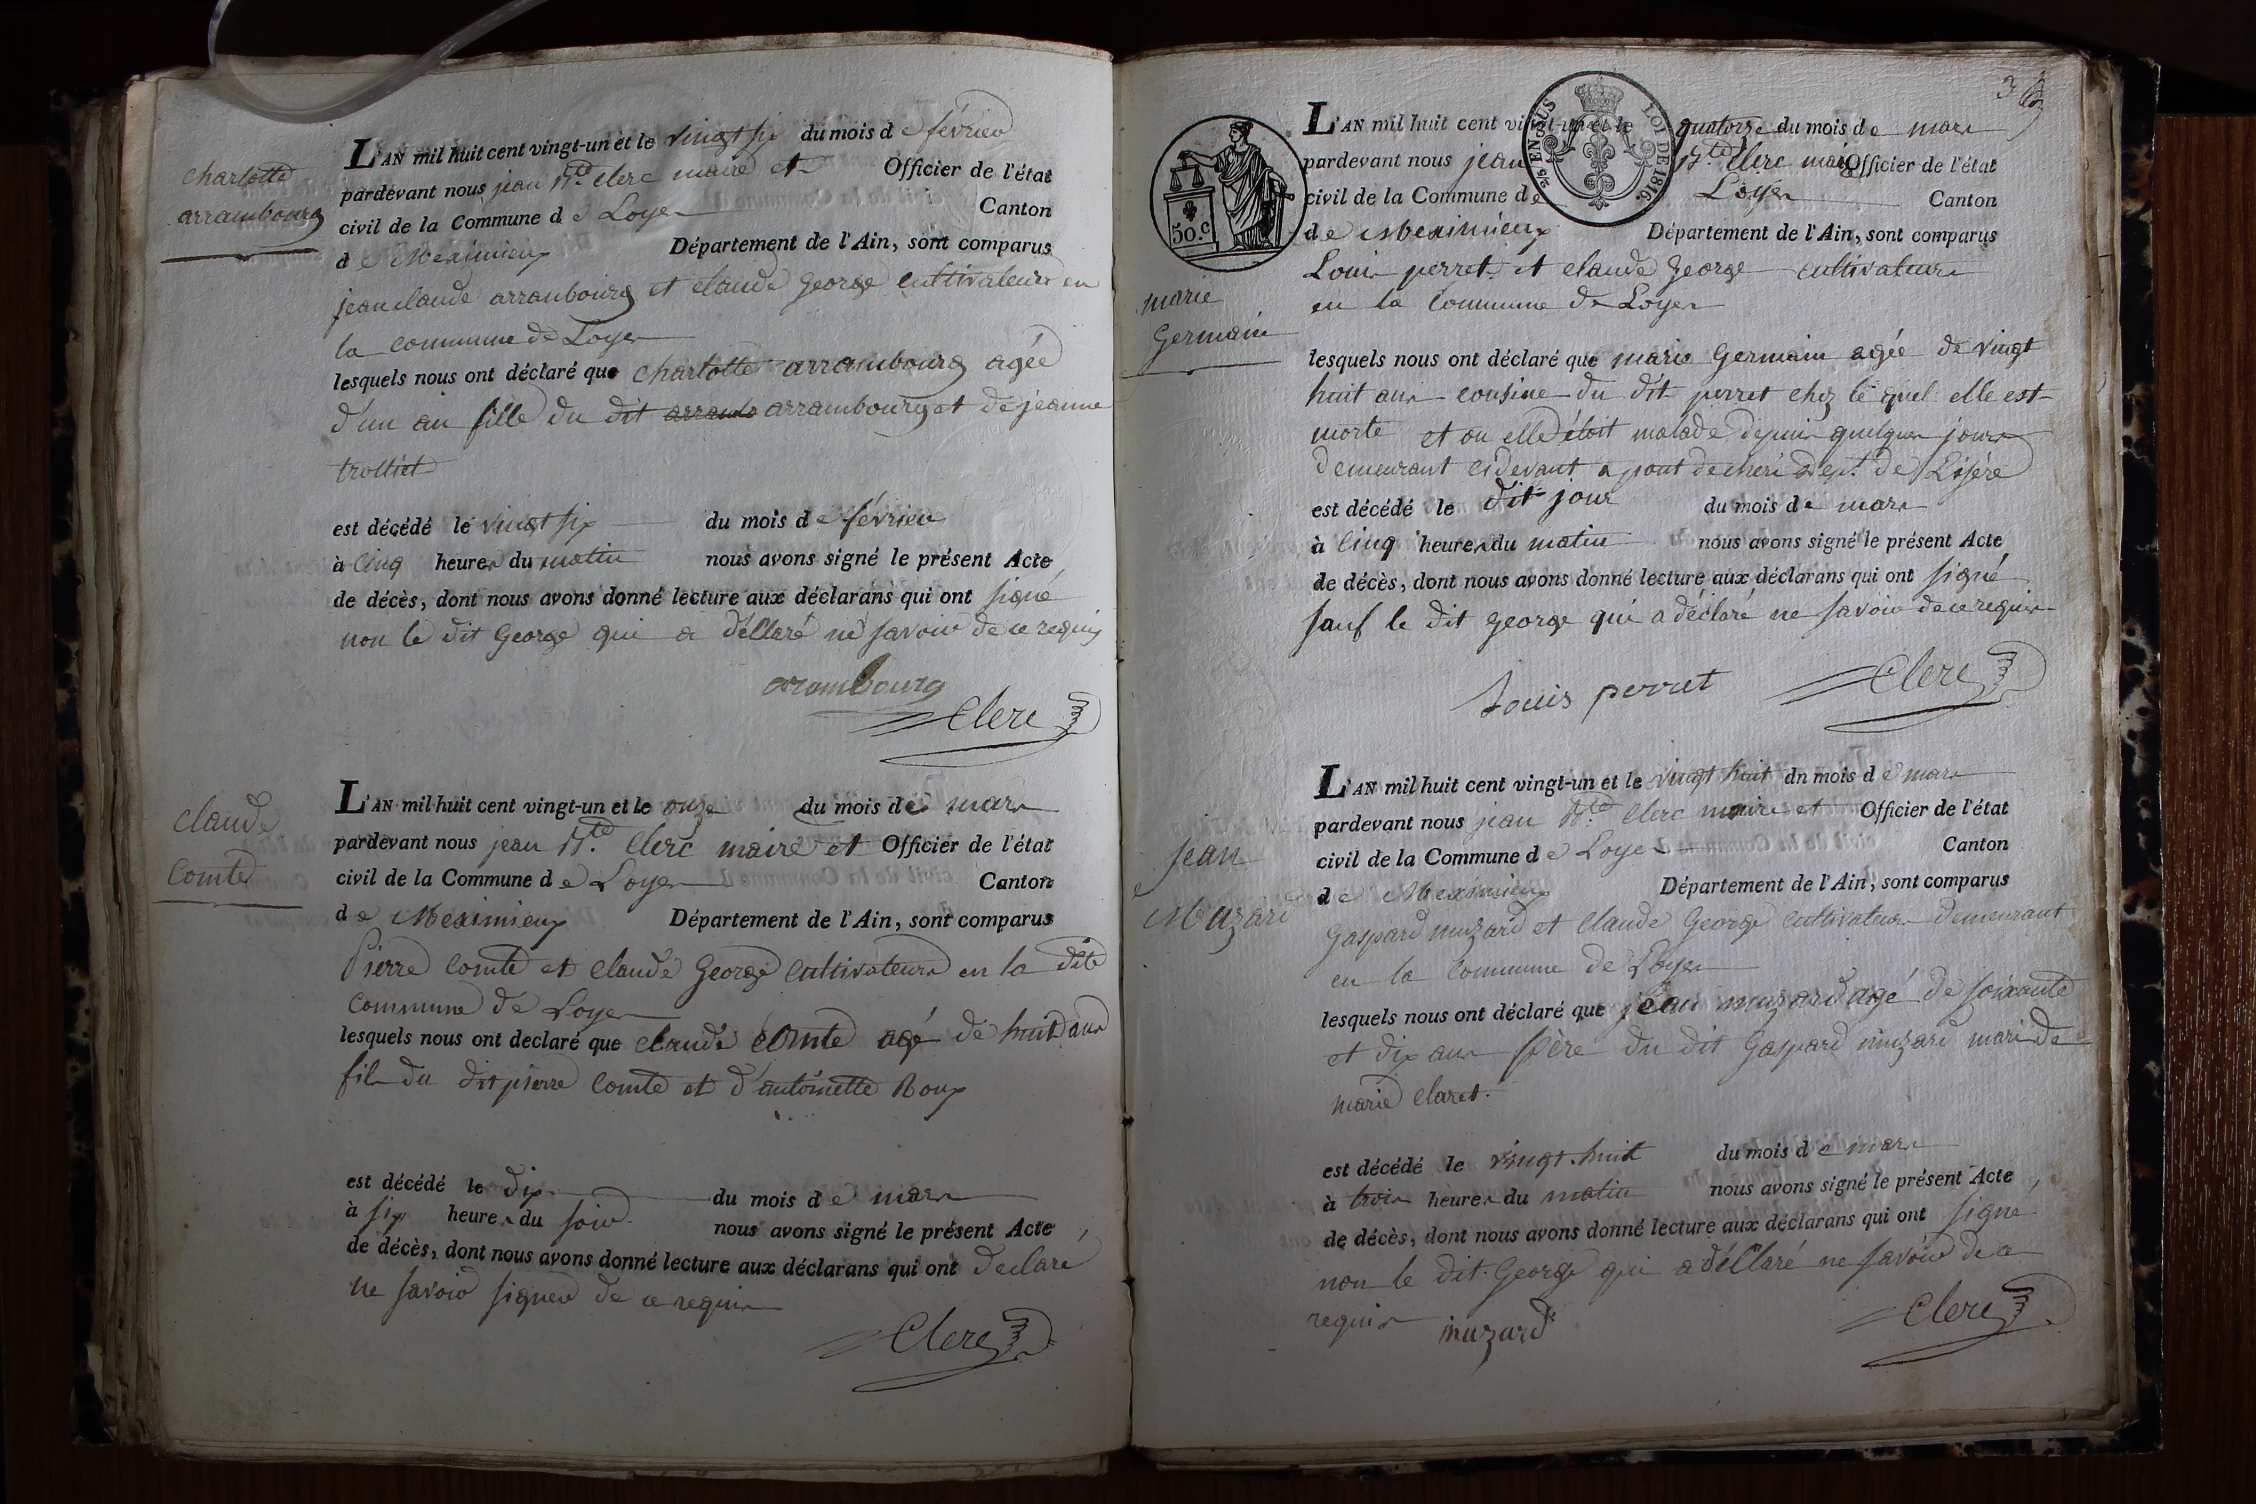 charlotte
arrambourg
L'AN mil huit cent vingt-un et le vingt six du mois de février
pardevant nous jean Bte clerc maire et Officier de l'état
civil de la Commune de Loyes Canton
de Meximieux Département de l'Ain, sont comparus
jean claude arrambourg et claude george cultivateurs en
la commune de Loyes
lesquels nous ont déclaré que charlotte arrambourg agée
d'un an fille du dit arramb arrambourg et de jeanne
trolliet
est décédé le vingt six du mois de février
à cinq heures du matin nous avons signé le présent Acte
de décès, dont nous avons donné lecture aux déclarans qui ont signé
non le dit George qui a déllaré ne savoir de ce requis
arambourg
Clerc
claude
comte
L'AN mil huit cent vingt-un et le onze du mois de mars
pardevant nous jean Bte Clerc maire et Officier de l'état
civil de la Commune de Loyes Canton
de Meximieux Département de l'Ain, sont comparus
Pierre comte et claude George cultivateurs en la dite
commune de Loyes
lesquels nous ont declaré que claude comte agé de huit ans
fils du dit pierre comte et d'antoinette Roux
est décédé le dix du mois de mars
à six heures du soir nous avons signé le présent Acte
de décès, dont nous avons donné lecture aux déclarans qui ont declaré
ne savoir signer de ce requis
Clerc
3
2/5 EN SUS
LOI DE 1816.
50.c
marie
Germain
L'AN mil huit cent vingt-un et le quatorze du mois de mars
pardevant nous jean Bte clerc maire Officier de l'état
civil de la Commune de Loyes Canton
de Meximieux Département de l'Ain, sont comparus
Louis perret et claude George cultivateurs
en la commune de Loyes
lesquels nous ont déclaré que marie Germain agée de vingt
huit ans cousine du dit perret chez le quel elle est
morte et ou elle étoit malade depuis quelques jours
demeurant cidevant a pont de cheri Dept. de L'isère
est décédé le dit jour du mois de mars
à cinq heures du matin nous avons signé le présent Acte
de décès, dont nous avons donné lecture aux déclarans qui ont signé
sauf le dit george qui a déclaré ne savoir de ce requis
Louis perret
Clerc
jean
Muzard
L'AN mil huit cent vingt-un et le vingt huit dn mois de mars
pardevant nous jean Bte clerc maire et Officier de l'état
civil de la Commune de Loyes Canton
de Meximieux Département de l'Ain, sont comparus
Gaspard muzard et Claude George cultivateurs demeurant
en la commune de Loyes
lesquels nous ont déclaré que jean muzard agé de soixante
et dix ans père du dit Gaspard muzard mari de
marie claret.
est décédé le vingt-huit du mois de mars
à trois heures du matin nous avons signé le présent Acte
de décès, dont nous avons donné lecture aux déclarans qui ont signé
non le dit George qui a déllaré ne savoir de ce
requis
muzard
Clerc